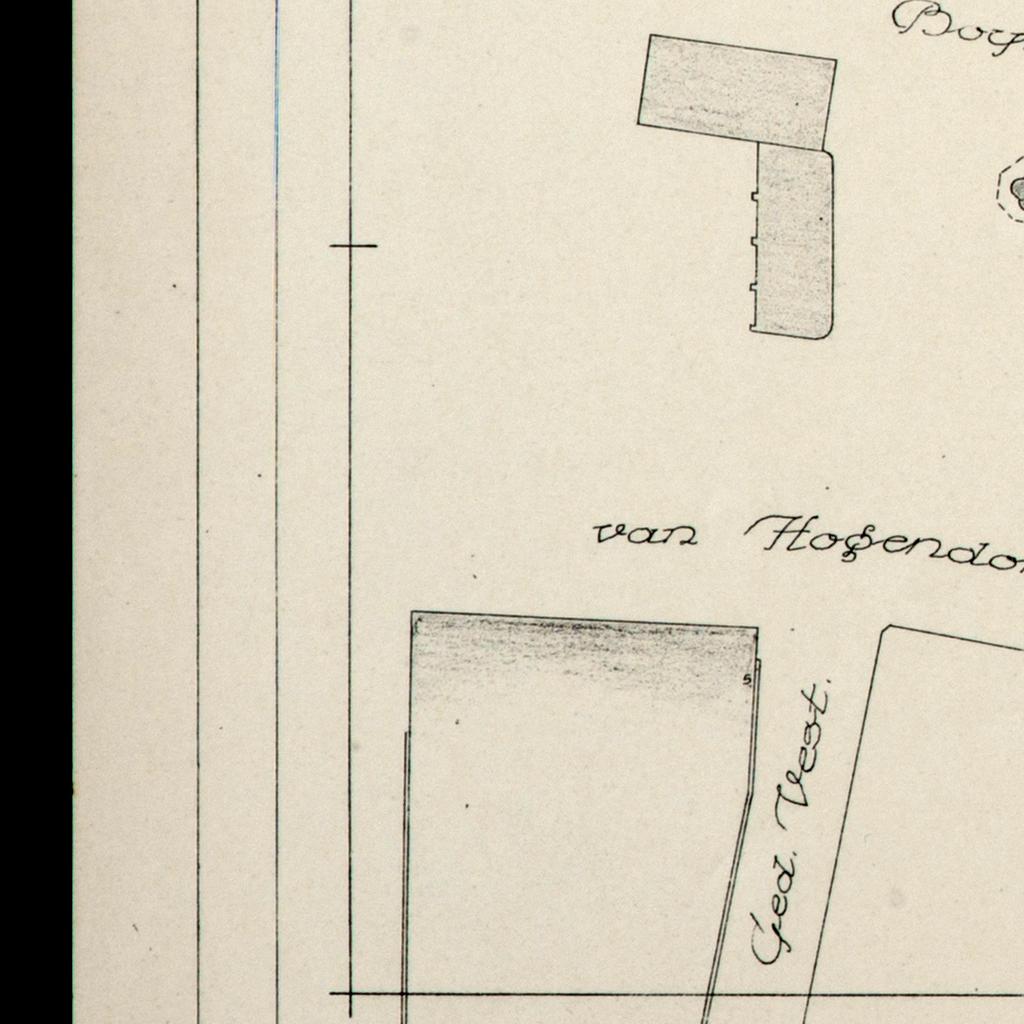 van Hogendo
5
Ged. Vest.